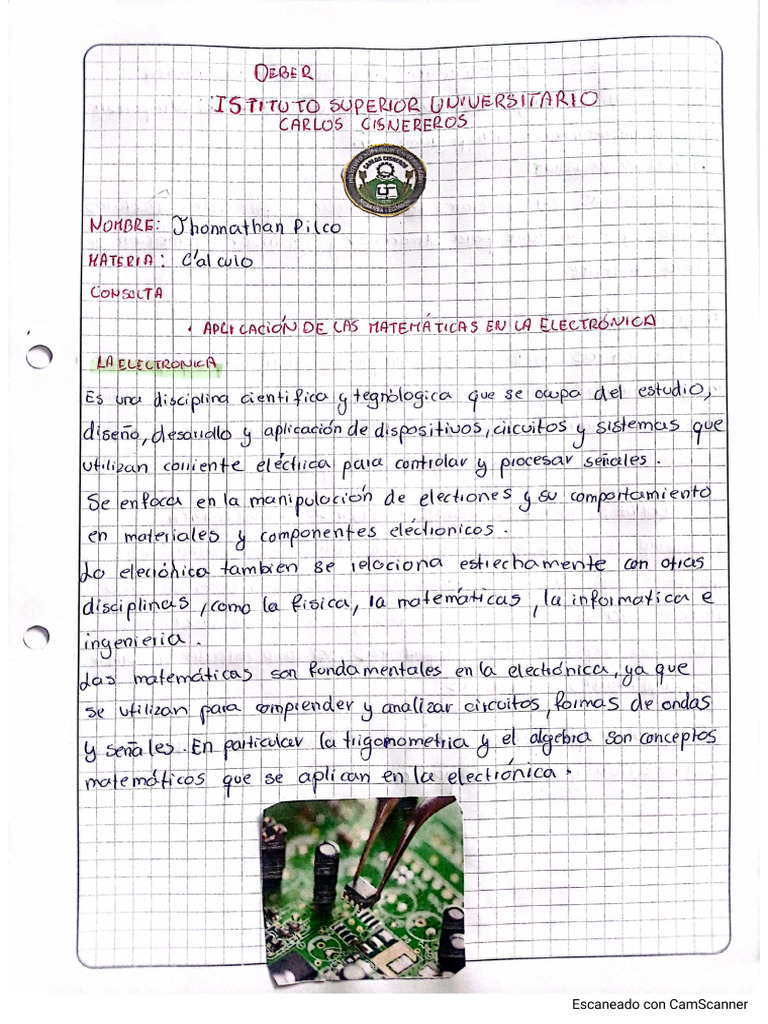 DEBER
ISTITUTO SUPERIOR UNIVERSITARIO
CARLOS CISNEREROS
CARLOS CISNEROS
NOMBRE: Jhonnathan Pilco
MATERIA: Cálculo
CONSULTA
• APLICACIÓN DE LAS MATEMÁTICAS EN LA ELECTRÓNICA
LA ELECTRONICA
Es una disciplina cientifica y tegnólogica que se ocupa del estudio,
diseño, desarollo y aplicación de dispositivos, circuitos y sistemas que
utilizan corriente eléctrica para controlar y procesar señales.
Se enfoca en la manipulación de electrones y su comportamiento
en materiales y componentes eléctronicos.
La elecrónica tambien se relaciona estrechamente con otras
disciplinas, como la física, la matemáticas, la informatica e
ingenieria.
Las matemáticas son fundamentales en la electrónica, ya que
se utilizan para comprender y analizar circuitos, formas de ondas
y señales. En particular la trigomometria y el algebra son conceptos
matemáticos que se aplican en la electrónica.
Escaneado con CamScanner